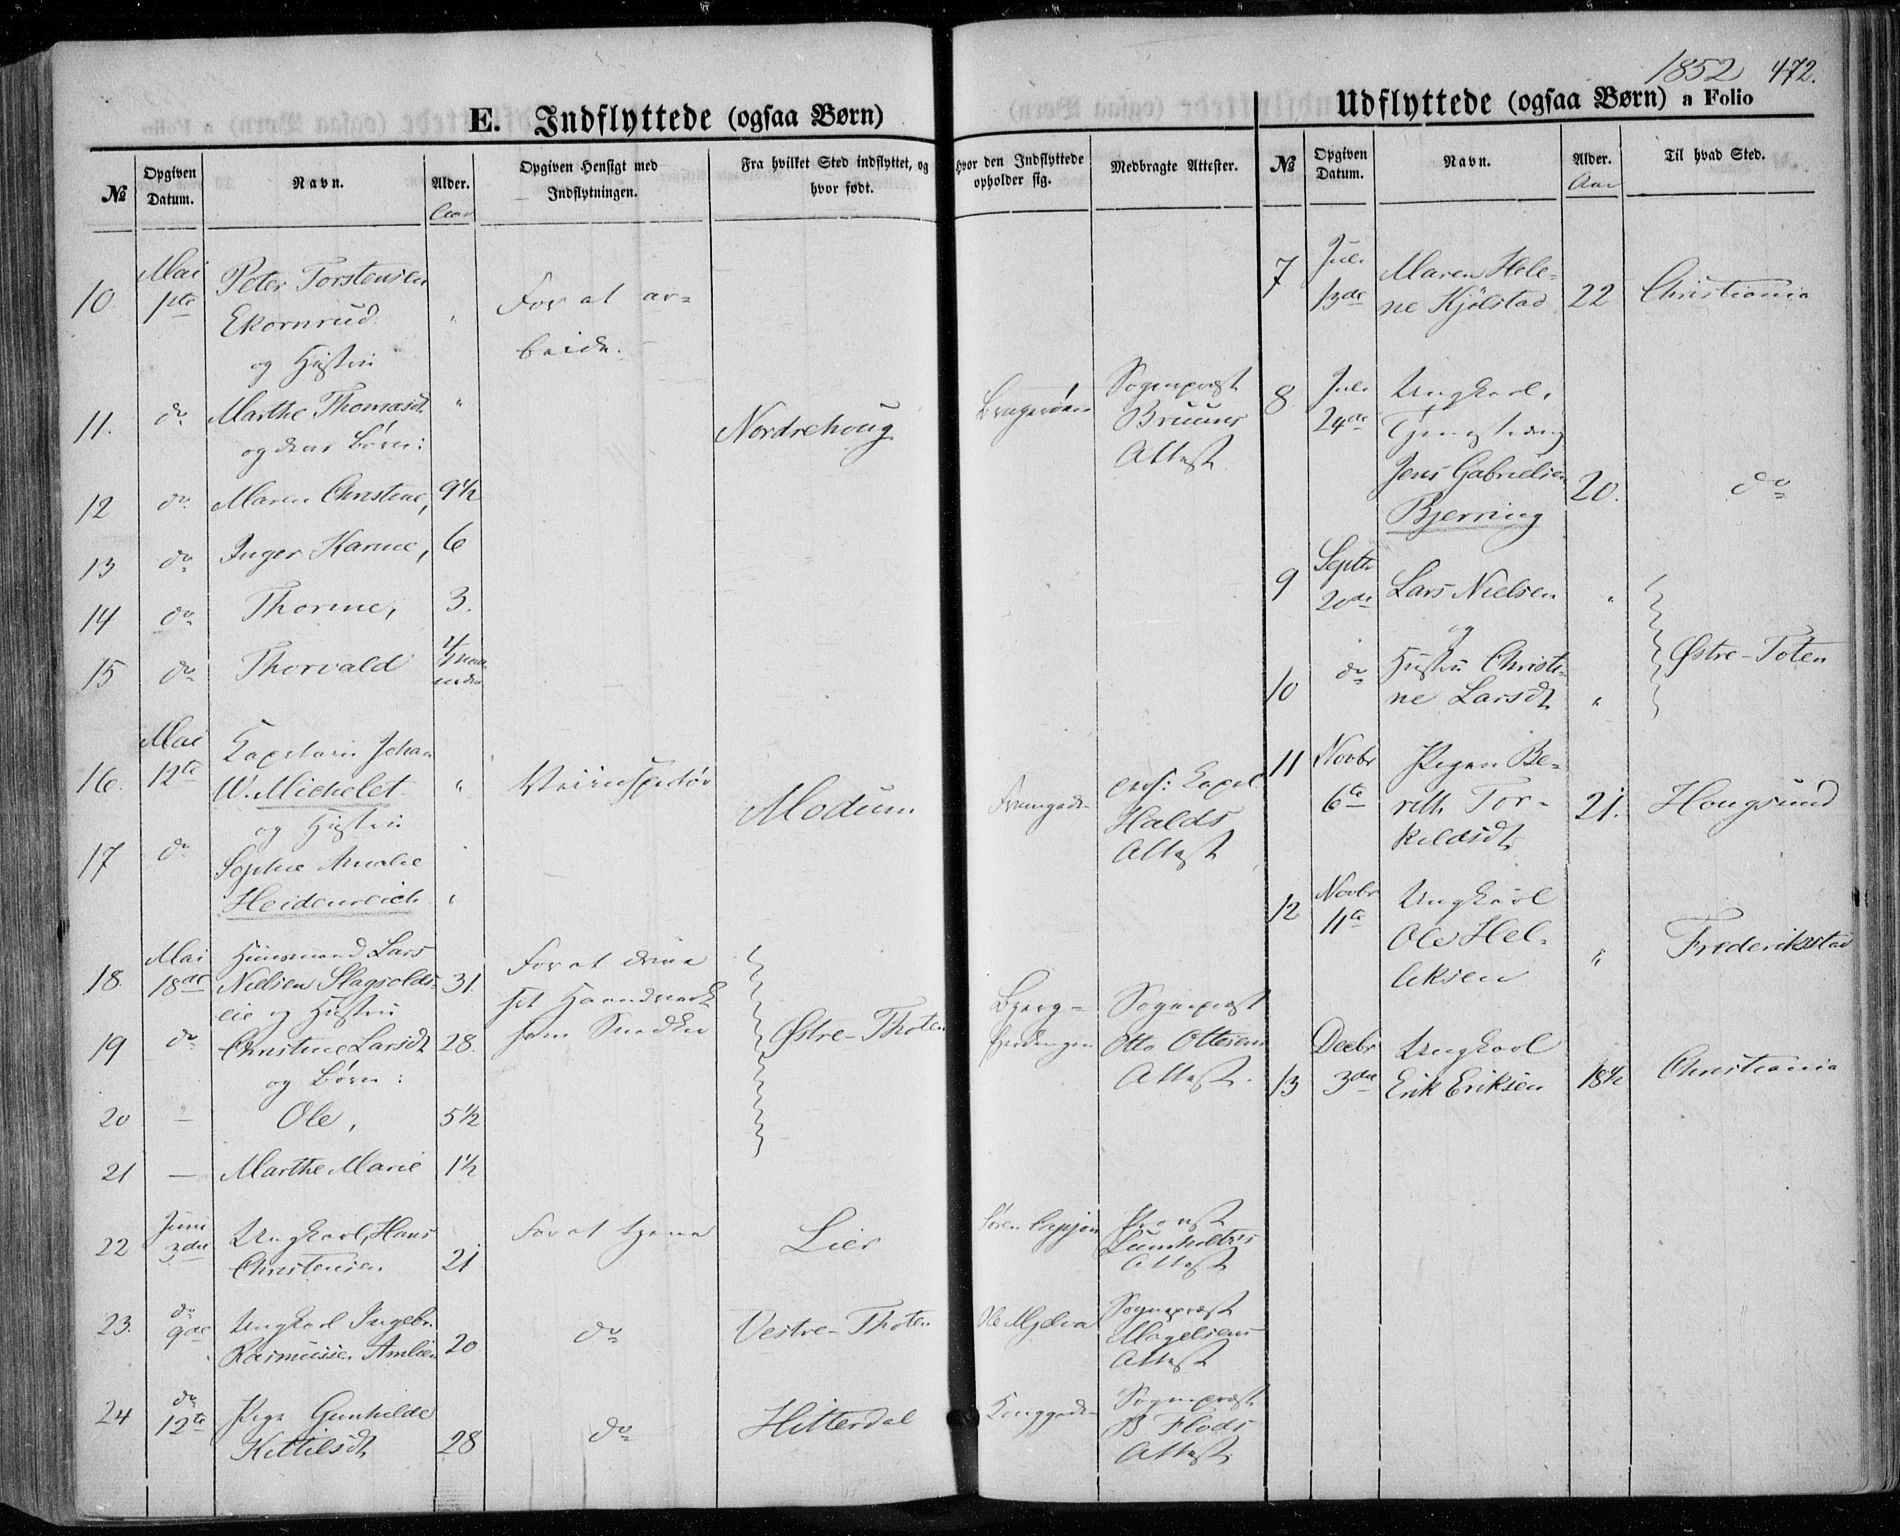 1852 472.
E. Indflyttede (ogsaa Børn)
№ Opgiven Datum. Navn. Alder. Opgiven Hensigt med Indflytningen. Fra hvilket Sted indflyttet, og hvor født. Hvor den Indflyttede opholder sig. Medbragte Attester.
Aar
10. Mai 1ste Peter Torstensen
Ekornrud " For at ar=
og Hustru beide.
11. do Marthe Thomasdt " Nordrehoug Bragerøen Sognepræst
og deres Børn: Bruuns
Attest
12 do Maren Christine, 9½
13 do Inger Karine, 6
14 do Thorine, 3.
15 do Thorvald 4 maa
neder
16. Mai 12te Kapitain Johan
W. Michelet " Veiinspektør Modum pers: Capel
og Hustru Halds
17 do Sophie Amalie Attest
Heidenreich "
18. Mai 18de Huusmand Lars For at drive
Nielsen Slagsvolds- 31. sit Haandværk
eie og Hustru som Snedker
19 do Christine Larsdt 28. Østre-Thoten Sognepræst
og Børn: Otto Ottesens
Attest.
20 — Ole, 5½
21 — Marthe Marie 1½
22 Juni 3die Ungkarl, Hans For at tjene Lier Søren Cappelen Provst
Christensen 21 Lumholtzes
Attest
23. do 9de Ungkarl Ingebr. do Vestre-Thoten Sognepræst
Rasmussen Amlien 20 Magelsens
Attest
24 do 12te Pige Gunhilde do Hitterdal Kongegaden Sognepræst
Kittilsdt 28 B Flods
Attest
Udflyttede (ogsaa Børn) a Folio
№ Opgiven Datum. Navn. Alder. Til hvad Sted.
Aar
7 Juli 13de Maren Hele-
ne Kjölstad 22 Christiania
8 Juli 24de Ungkarl,
Tjenestedreng
Jens Gabrielsen 20. do
Bjerring
9 Septbr 20de Lars Nielsen "
og
10 do Hustru Christi-
ne Larsdt " Østre-Toten
11 Novbr 6te Pigen Be-
reth Tor- 21. Hougsund
kildsdt
12 Novbr 11te Ungkarl
Ole Hel-
leksen " Frederiksstad
13 Decbr 3die Ungkarl
Erik Eriksen 18½ Christiania